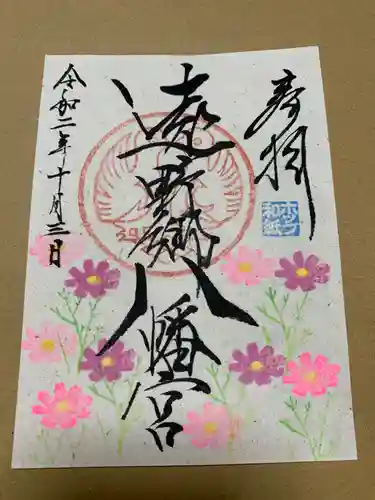 奉拝
ホップ
和紙
遠野郷八幡宮
令和二年十月三日